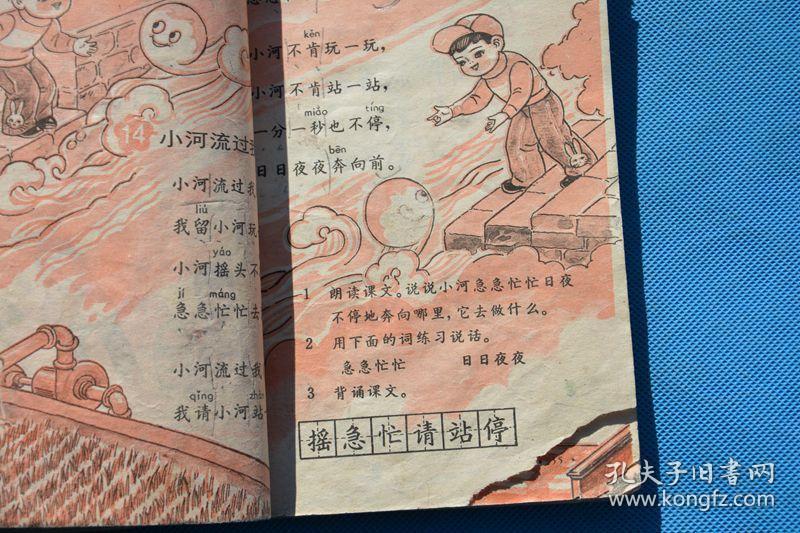 14 小河流过
小河流过我
liú
我留小河玩
yáo
小河摇头不
jí máng
急急忙忙去
小河流过我
qǐng
我请小河站
kěn
小河不肯玩一玩，
小河不肯站一站，
miǎo tíng
一分一秒也不停，
bēn
日日夜夜奔向前。
1 朗读课文。说说小河急急忙忙日夜
不停地奔向哪里，它去做什么。
2 用下面的词练习说话。
急急忙忙 日日夜夜
3 背诵课文。
摇急忙请站停
孔夫子旧书网
www.kongfz.com